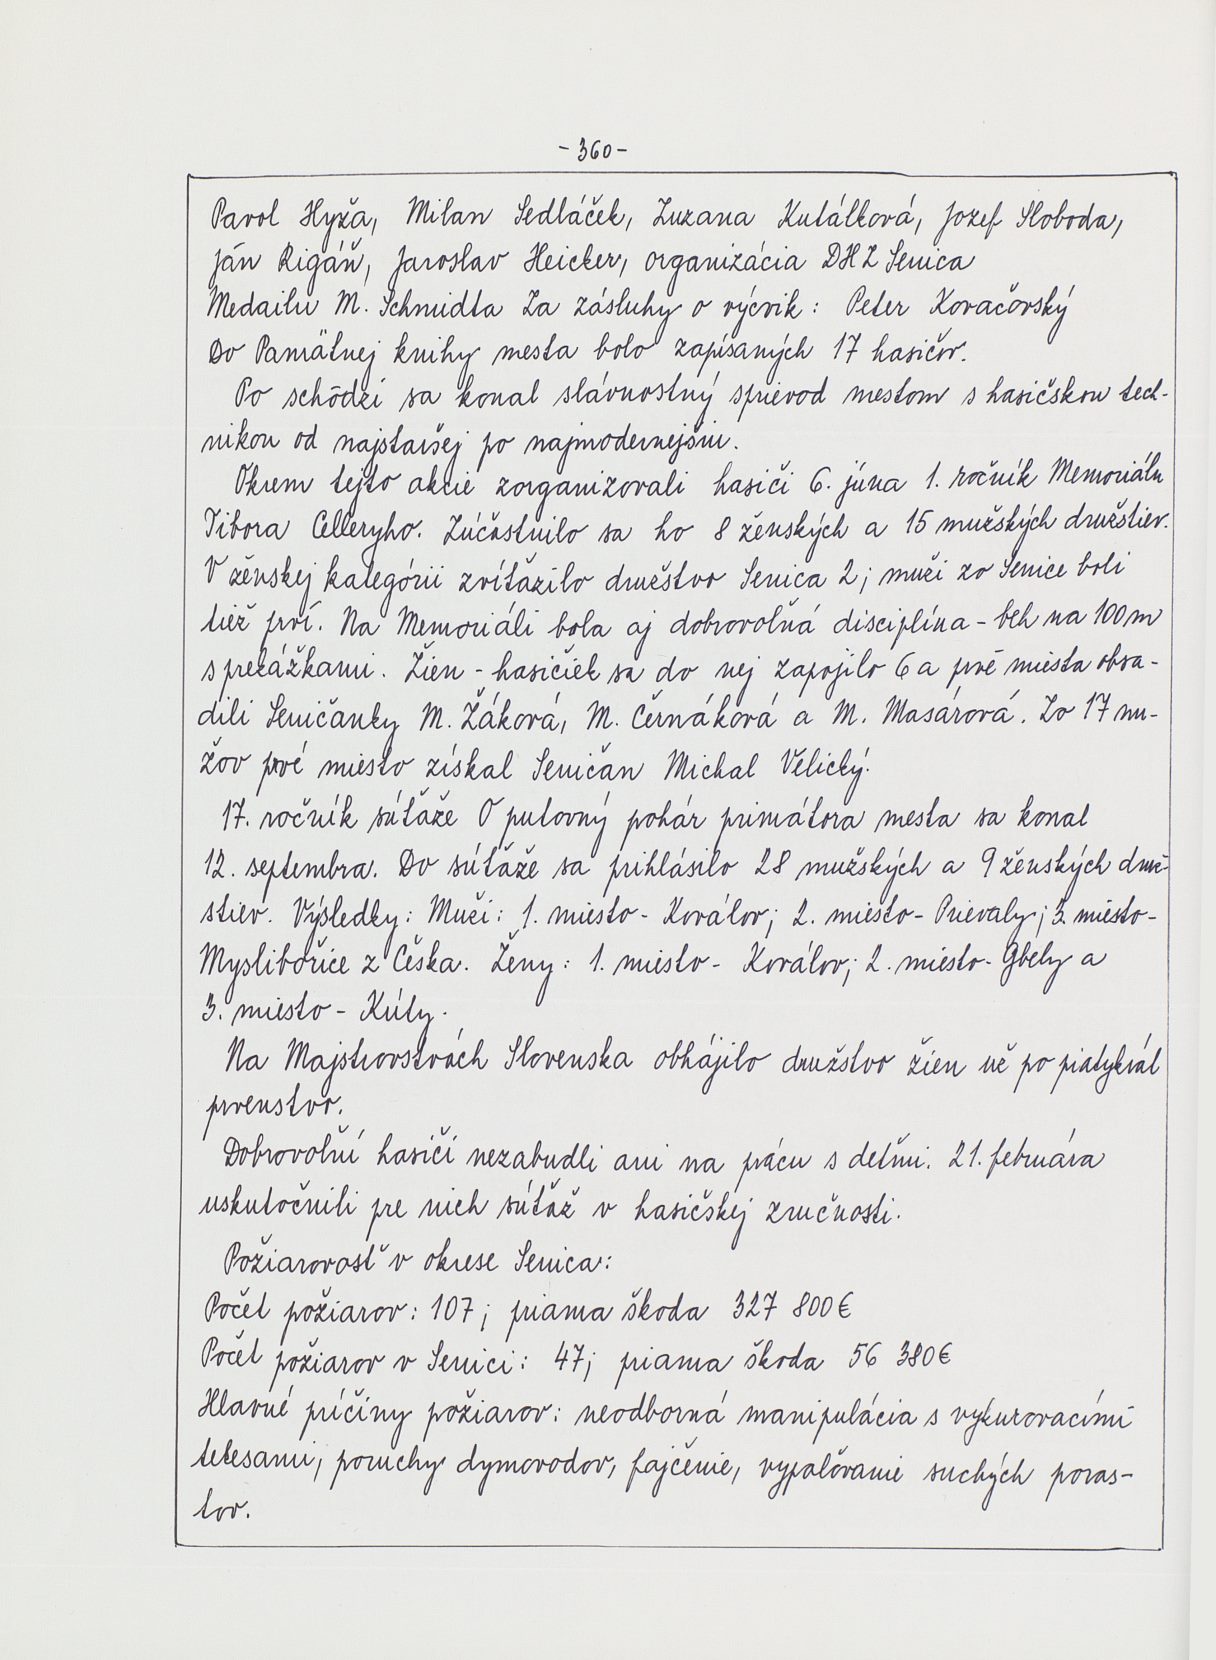 - 360 -
Pavol Hyža, Milan Sedláček, Zuzana Kutálková, Jozef Sloboda,
Ján Rigáň, Jaroslav Heicker, organizácia DHZ Senica
Medailu M. Schmidta Za zásluhy o výcvik: Peter Kovačovský
Do Pamätnej knihy mesta bolo zapísaných 17 hasičov.
Po schôdzi sa konal slávnostný sprievod mestom s hasičskou tech-
nikou od najstaršej po najmodernejšiu.
Okrem tejto akcie zorganizovali hasiči 6. júna 1. ročník Memoriálu
Tibora Celleryho. Zúčastnilo sa ho 8 ženských a 15 mužských družstiev.
V ženskej kategórii zvíťazilo družstvo Senica 2; muži zo Senice boli
tiež prví. Na Memoriáli bola aj dobrovoľná disciplína - beh na 100 m
s prekážkami. Žien - hasičiek sa do nej zapojilo 6 a prvé miesta obsa-
dili Seničanky M. Žáková, M. Černáková a M. Masárová. Zo 17 mu-
žov prvé miesto získal Seničan Michal Velický.
17. ročník súťaže O putovný pohár primátora mesta sa konal
12. septembra. Do súťaže sa prihlásilo 28 mužských a 9 ženských druž-
stiev. Výsledky: Muži: 1. miesto - Koválov; 2. miesto - Prievaly; 3. miesto -
Myslibořice z Česka. Ženy: 1. miesto - Koválov; 2. miesto - Gbely a
3. miesto - Kúty.
Na Majstrovstvách Slovenska obhájilo družstvo žien už po piatykrát
prvenstvo.
Dobrovoľní hasičí nezabudli ani na prácu s deťmi. 21. februára
uskutočnili pre nich súťaž v hasičskej zručnosti.
Požiarovosť v okrese Senica:
Počet požiarov: 107; priama škoda 327 800 €
Počet požiarov v Senici: 47; priama škoda 56 380 €
Hlavné príčiny požiarov: neodborná manipulácia s vykurovacími
telesami, poruchy dymovodov, fajčenie, vypaľovanie suchých poras-
tov.